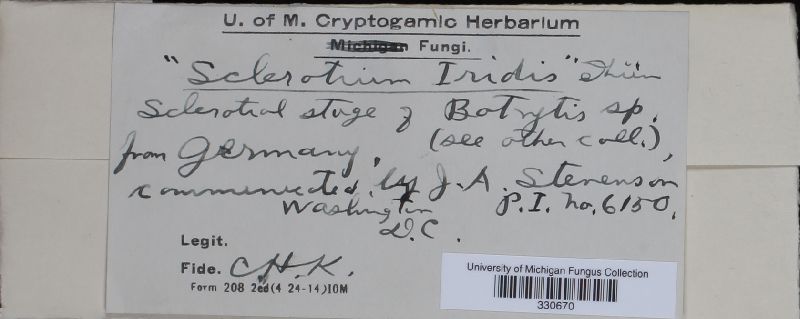 U. of M. Cryptogamic Herbarium
Michigan Fungi.
"Sclerotium Iridis" Thüm
Sclerotial stage of Botrytis sp.
(see other coll.),
from Germany,
communicated by J. A. Stevenson
Washington P.I. No. 6150.
D.C.
Legit.
Fide. C.H.K.
Form 208 2ed(4 24-14)10M
University of Michigan Fungus Collection
330670